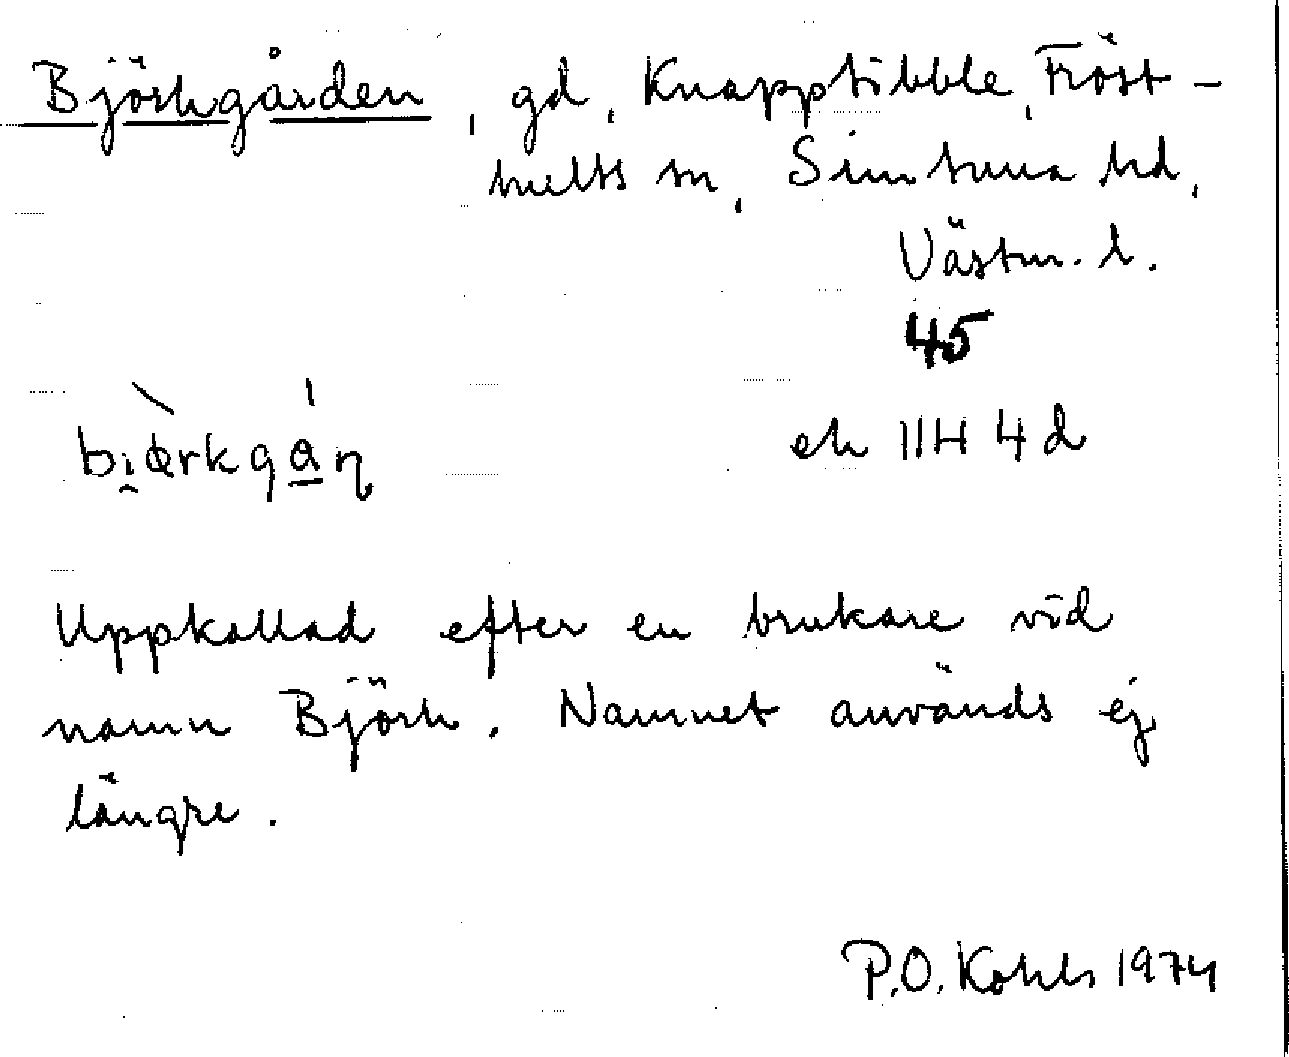 Björkgården, gd, Knapptibble, Fröst-
hults sn, Simtuna hd,
Västm. l.
45
ek 11H 4d
Uppkallad efter en brukare vid
namn Björk. Namnet används ej
längre.
P.O. Kohls 1974